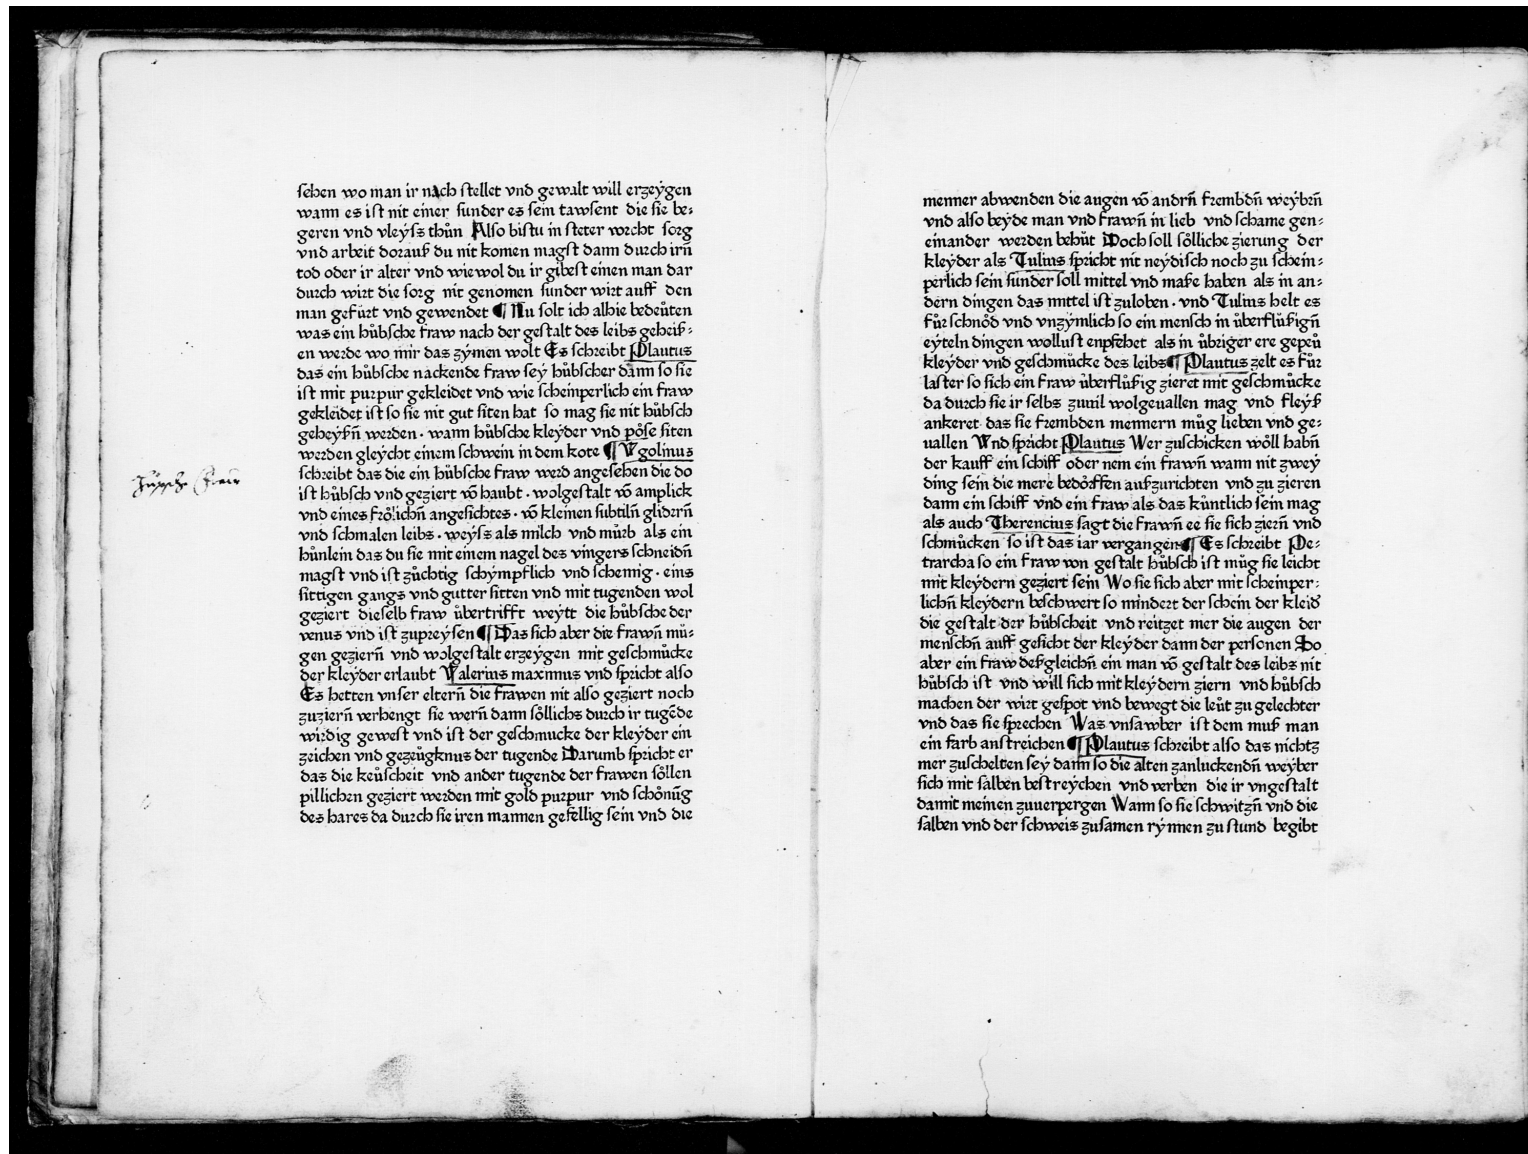 sehen wo man ir nach stellet vnd gewalt will erzeÿgen
wann es ist nit einer sunder es sein tawsent die sie be⸗
geren vnd vleÿss thůn Also bistu in steter vorcht sorg
vnd arbeit dorauß du nit komen magst dann durch irn̄
tod oder ir alter vnd wiewol du ir gibest einen man dar
durch wirt die sorg nit genomen sunder wirt auff den
man gefürt vnd gewendet ¶ Nu solt ich alhie bedeüten
was ein hůbsche fraw nach der gestalt des leibs geheiß⸗
en werde wo mir das zÿmen wolt Es schreibt Plautus
das ein hůbsche nackende fraw seÿ hůbscher dann so sie
ist mit purpur gekleidet vnd wie scheinperlich ein fraw
gekleidet ist so sie nit gut siten hat so mag sie nit hůbsch
geheÿßn̄ werden · wann hůbsche kleÿder vnd pőse siten
werden gleÿcht einem schwein in dem kote ¶ Vgolinus
schreibt das die ein hůbsche fraw werd angesehen die do
ist hůbsch vnd geziert vō haubt · wolgestalt vō amplick
vnd eines frőlichn̄ angesichtes · vō kleinen subtiln̄ glidern̄
vnd schmalen leibs · weÿss als milch vnd můrb als ein
hůnlein das du sie mit einem nagel des vingers schneidn̄
magst vnd ist zůchtig schÿmpflich vnd schemig · eins
sittigen gangs vnd gutter sitten vnd mit tugenden wol
geziert dieselb fraw ůbertrifft weÿtt die hůbsche der
venus vnd ist zupreÿsen ¶ Das sich aber die frawn̄ mů⸗
gen geziern̄ vnd wolgestalt erzeÿgen mit geschmůcke
der kleÿder erlaubt Valerius maximus vnd spricht also
Es hetten vnser eltern̄ die frawen nit also geziert noch
zuziern̄ verhengt sie wern̄ dann sőllichs durch ir tugēde
wirdig gewest vnd ist der geschmucke der kleÿder ein
zeichen vnd gezeůgknus der tugende Darumb spricht er
das die keůscheit vnd ander tugende der frawen sőllen
pillichen geziert werden mit gold purpur vnd schőnůg
des hares da durch sie iren mannen gefellig sein vnd die
hůpsche Fraw
menner abwenden die augen vō andrn̄ frembdn̄ weÿbrn̄
vnd also beÿde man vnd frawn̄ in lieb vnd schame gen⸗
einander werden behůt Doch soll sőlliche zierung der
kleÿder als Tulius spricht nit neÿdisch noch zu schein⸗
perlich sein sunder soll mittel vnd maße haben als in an⸗
dern dingen das mittel ist zuloben · vnd Tulius helt es
fůr schnőd vnd vnzÿmlich so ein mensch in ůberflůßign̄
eÿteln dingen wollust enpfehet als in ůbriger ere gepeů
kleÿder vnd geschmůcke des leibs ¶ Plautus zelt es fůr
laster so sich ein fraw ůberflůßig zieret mit geschmůcke
da durch sie ir selbs zuuil wolgeuallen mag vnd fleÿß
ankeret das sie frembden mennern můg lieben vnd ge⸗
uallen Vnd spricht Plautus Wer zuschicken wőll habn̄
der kauff ein schiff oder nem ein frawn̄ wann nit zweÿ
ding sein die mere bedőrffen außzurichten vnd zu zieren
dann ein schiff vnd ein fraw als das kůntlich sein mag
als auch Therencius sagt die frawn̄ ee sie sich ziern̄ vnd
schmůcken so ist das iar vergangen ¶ Es schreibt Pe⸗
trarcha so ein fraw von gestalt hůbsch ist můg sie leicht
mit kleÿdern geziert sein Wo sie sich aber mit scheinper⸗
lichn̄ kleÿdern beschwert so mindert der schein der kleid
die gestalt der hůbscheit vnd reitzet mer die augen der
menschn̄ auff gesicht der kleÿder dann der personen So
aber ein fraw deßgleichn̄ ein man vō gestalt des leibs nit
hůbsch ist vnd will sich mit kleÿdern ziern vnd hůbsch
machen der wirt gespot vnd bewegt die leůt zu gelechter
vnd das sie sprechen Was vnsawber ist dem muß man
ein farb anstreichen ¶ Plautus schreibt also das nichtz
mer zuschelten seÿ dann so die alten zanluckendn̄ weÿber
sich mit salben bestreÿchen vnd verben die ir vngestalt
damit meinen zuuerpergen Wann so sie schwitzn̄ vnd die
salben vnd der schweis zusamen rÿnnen zu stund begibt